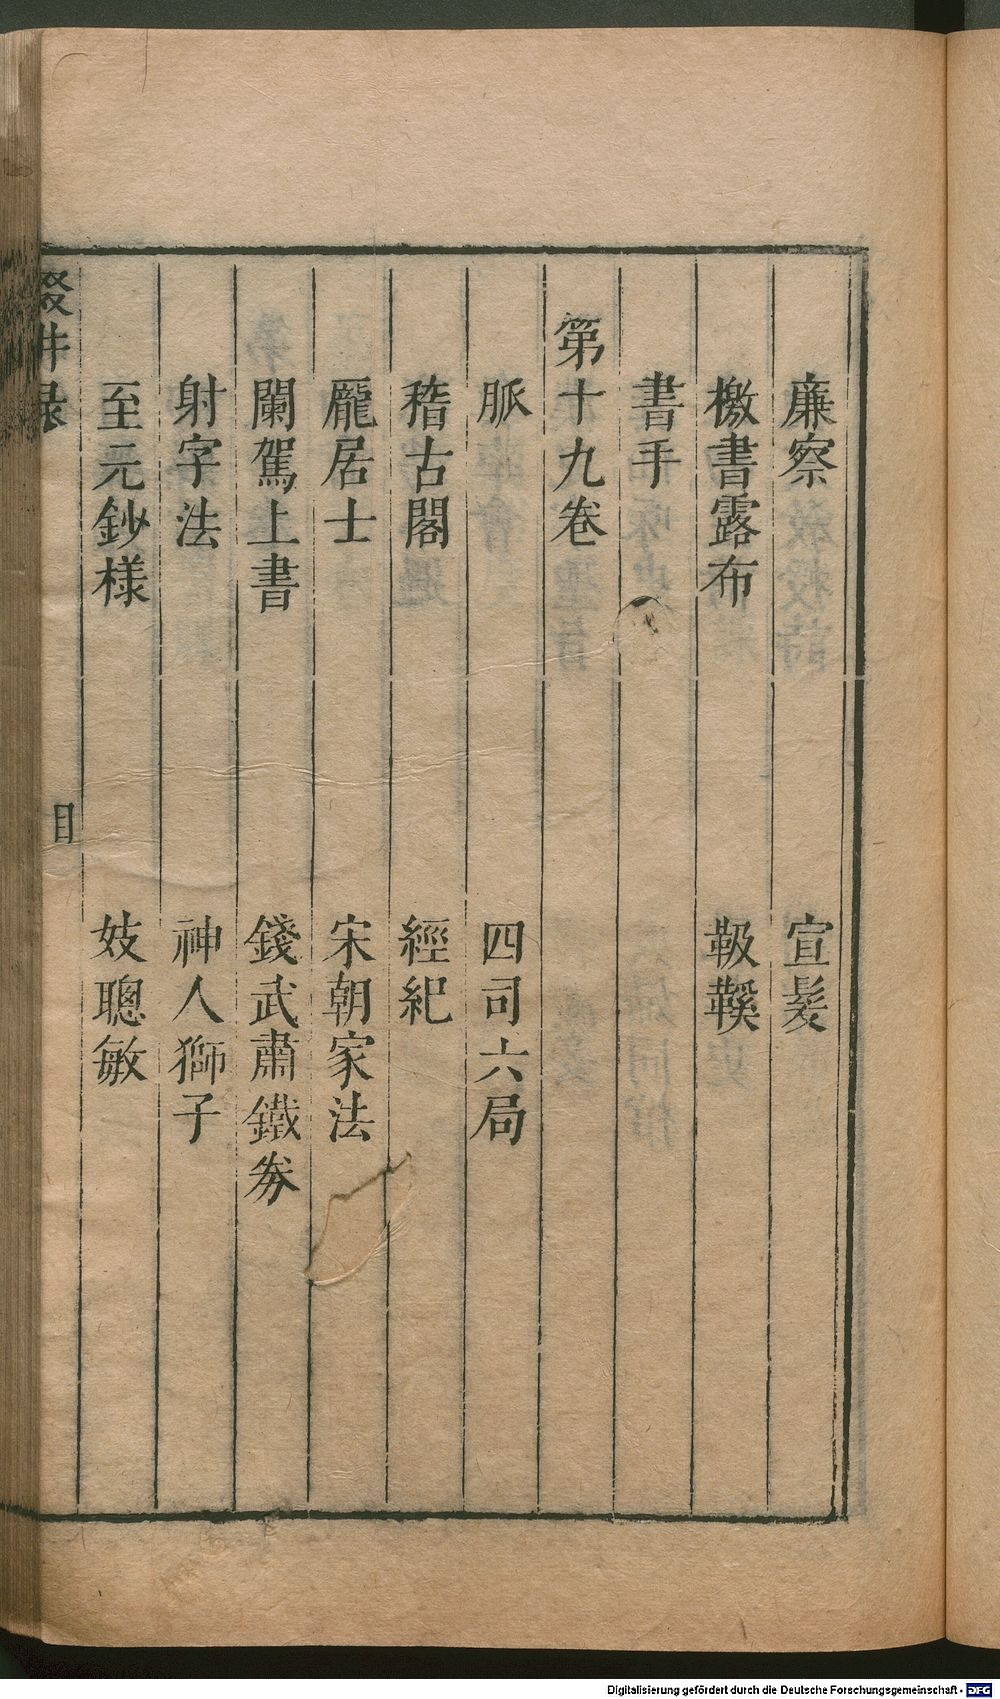 廉察 宣髮
檄書露布 靸鞵
書手
第十九卷
脈 四司六局
稽古閣 經紀
龐居士 宋朝家法
闌駕上書 錢武肅鐵券
射字法 神人獅子
至元鈔様 妓聰敏
輟畊录 目
Digitalisierung gefördert durch die Deutsche Forschungsgemeinschaft - DFG